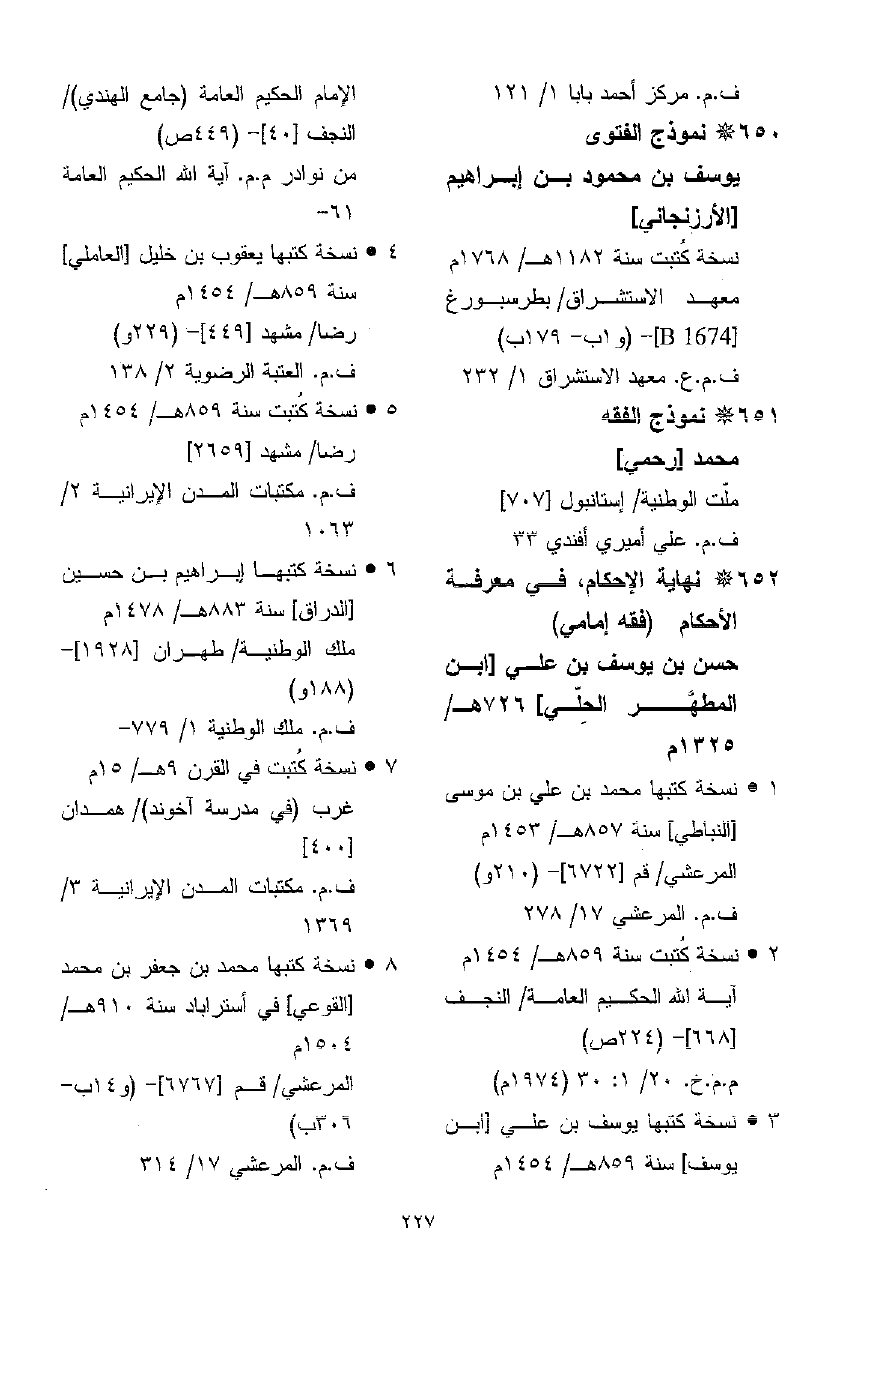 ف.م. مركز أحمد بابا ١/ ١٢١
٦٥٠* نموذج الفتوى
يوسف بن محمود بن إبراهيم
[الأرزنجاني]
نسخة كُتبت سنة ١١٨٢هـ/ ١٧٦٨م
معهد الاستشراق/ بطرسبورغ
[B 1674]- (و١ب- ١٧٩ب)
ف.م.ع. معهد الاستشراق ١/ ٢٣٢
٦٥١* نموذج الفقه
محمد [رحمي]
ملّت الوطنية/ إستانبول [٧٠٧]
ف.م. علي أميري أفندي ٣٣
٦٥٢* نهاية الإحكام، في معرفة
الأحكام (فقه إمامي)
حسن بن يوسف بن علي [ابن
المطهَّر الحِلّي] ٧٢٦هـ/
١٣٢٥م
١ • نسخة كتبها محمد بن علي بن موسى
[النباطي] سنة ٨٥٧هـ/ ١٤٥٣م
المرعشي/ قم [٦٧٢٢]- (٢١٠و)
ف.م. المرعشي ١٧/ ٢٧٨
٢ • نسخة كُتبت سنة ٨٥٩هـ/ ١٤٥٤م
آية الله الحكيم العامة/ النجف
[٦٦٨]- (٢٢٤ص)
م.م.خ. ٢٠/ ١: ٣٠ (١٩٧٤م)
٣ • نسخة كتبها يوسف بن علي [ابن
يوسف] سنة ٨٥٩هـ/ ١٤٥٤م
الإمام الحكيم العامة (جامع الهندي)/
النجف [٤٠]- (٤٤٩ص)
من نوادر م.م. آية الله الحكيم العامة
٦١-
٤ • نسخة كتبها يعقوب بن خليل [العاملي]
سنة ٨٥٩هـ/ ١٤٥٤م
رضا/ مشهد [٤٤٩]- (٢٢٩و)
ف.م. العتبة الرضوية ٢/ ١٣٨
٥ • نسخة كُتبت سنة ٨٥٩هـ/ ١٤٥٤م
رضا/ مشهد [٢٦٥٩]
ف.م. مكتبات المدن الإيرانية ٢/
١٠٦٣
٦ • نسخة كتبها إبراهيم بن حسين
[الدراق] سنة ٨٨٣هـ/ ١٤٧٨م
ملك الوطنية/ طهران [١٩٢٨]-
(١٨٨و)
ف.م. ملك الوطنية ١/ ٧٧٩-
٧ • نسخة كُتبت في القرن ٩هـ/ ١٥م
غرب (في مدرسة آخوند)/ همدان
[٤٠٠]
ف.م. مكتبات المدن الإيرانية ٣/
١٣٦٩
٨ • نسخة كتبها محمد بن جعفر بن محمد
[القوعي] في أستراباد سنة ٩١٠هـ/
١٥٠٤م
المرعشي/ قم [٦٧٦٧]- (و١٤ب-
٣٠٦ب)
ف.م. المرعشي ١٧/ ٣١٤
٢٢٧